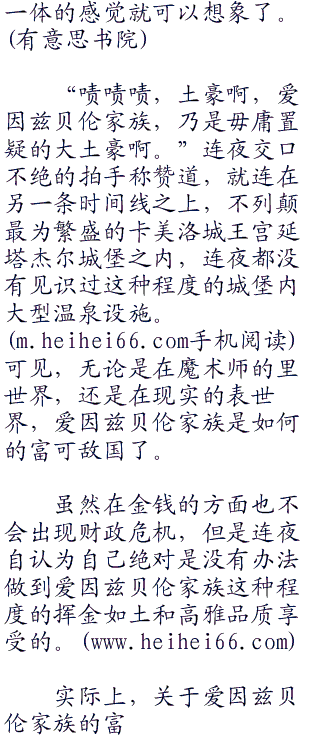 一体的感觉就可以想象了。
(有意思书院)
“啧啧啧，土豪啊，爱
因兹贝伦家族，乃是毋庸置
疑的大土豪啊。”连夜交口
不绝的拍手称赞道，就连在
另一条时间线之上，不列颠
最为繁盛的卡美洛城王宫延
塔杰尔城堡之内，连夜都没
有见识过这种程度的城堡内
大型温泉设施。
(m.heihei66.com手机阅读)
可见，无论是在魔术师的里
世界，还是在现实的表世
界，爱因兹贝伦家族是如何
的富可敌国了。
虽然在金钱的方面也不
会出现财政危机，但是连夜
自认为自己绝对是没有办法
做到爱因兹贝伦家族这种程
度的挥金如土和高雅品质享
受的。(www.heihei66.com)
实际上，关于爱因兹贝
伦家族的富